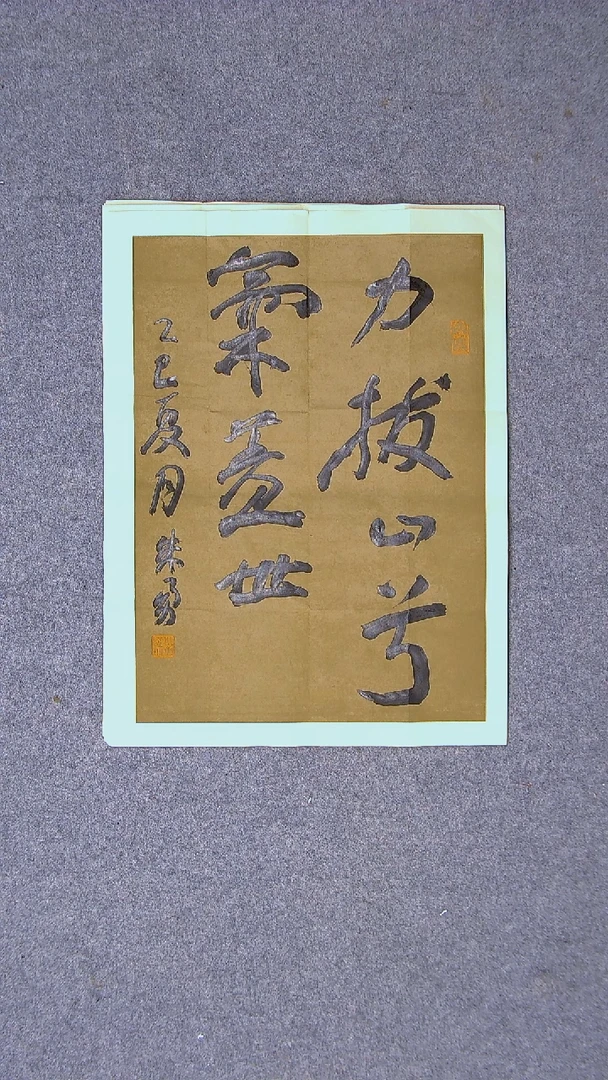 力拔山兮
氣蓋世
乙巳夏月 朱勇